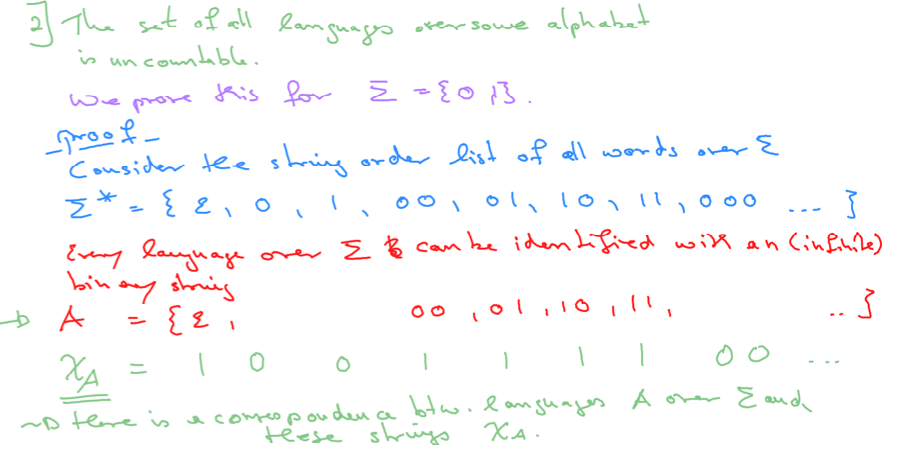 2] The set of all languages over some alphabet
is uncountable.
We prove this for Σ = {0,1}.
proof
Consider the string order list of all words over Σ
Σ* = { ε, 0, 1, 00, 01, 10, 11, 000 ... }
Every language over Σ can be identified with an (infinite)
binary string
→ A = { ε, 00, 01, 10, 11, .. }
χ_A = 1 0 0 1 1 1 1 0 0 ...
~> there is a correspondence btw. languages A over Σ and
these strings χ_A.